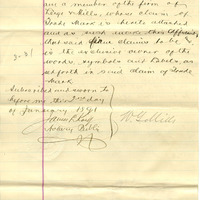 am a member of the firm of
Mills, whose claim of
Trade Mark is hereto attached
and as such make this affidavit
that said firm claims to be
the exclusive owner of the
words, symbols and labels, as
set forth in said claim of Trade
Mark
Subscribed and sworn to
before me this day
of January 1891
W. G. Mills
Notary Public